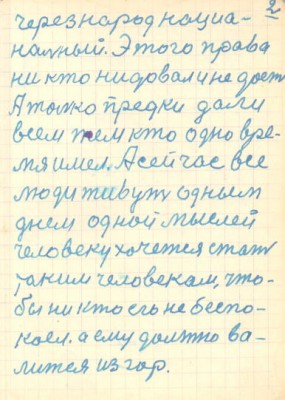 2
через народ нациа-
налный. Этого права
ни кто ни довал и не дает
А толко предки дали
всем тем кто одно вре-
мя имел. А сейчас все
люди живут одным
днем одной мыслей
человеку хочется стат
таким человекам, что-
бы ни кто его не беспо-
коел. а ему должно ва-
лится из гор.